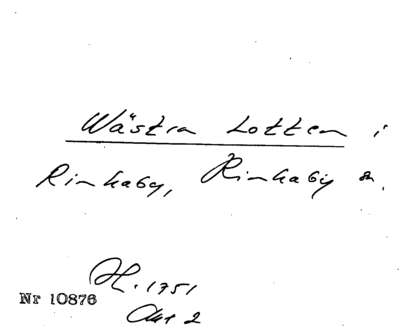 Wästra Lotten i
Rinkaby, Rinkaby sn.
H. 1751
Nr 10876
Akt 2